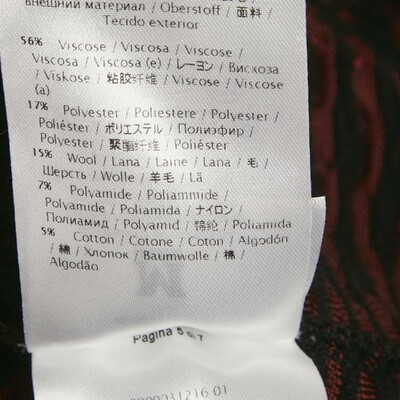 внешний материал / Oberstoff / 面料 /
Tecido exterior
56% Viscose / Viscosa / Viscose /
Viscosa / Viscosa (e) / レーヨン / Вискоза
/ Viskose / 粘胶纤维 / Viscose / Viscose
(a)
17% Polyester / Poliestere / Polyester /
Poliéster / ポリエステル / Полиэфир /
Polyester / 聚酯纤维 / Poliéster
15% Wool / Lana / Laine / Lana / 毛 /
Шерсть / Wolle / 羊毛 / Lã
7% Polyamide / Poliammide /
Polyamide / Poliamida / ナイロン /
Полиамид / Polyamid / 锦纶 / Poliamida
5% Cotton / Cotone / Coton / Algodón
/ 綿 / Хлопок / Baumwolle / 棉 /
Algodão
M
Pagina 5 di 7
0000031216 01